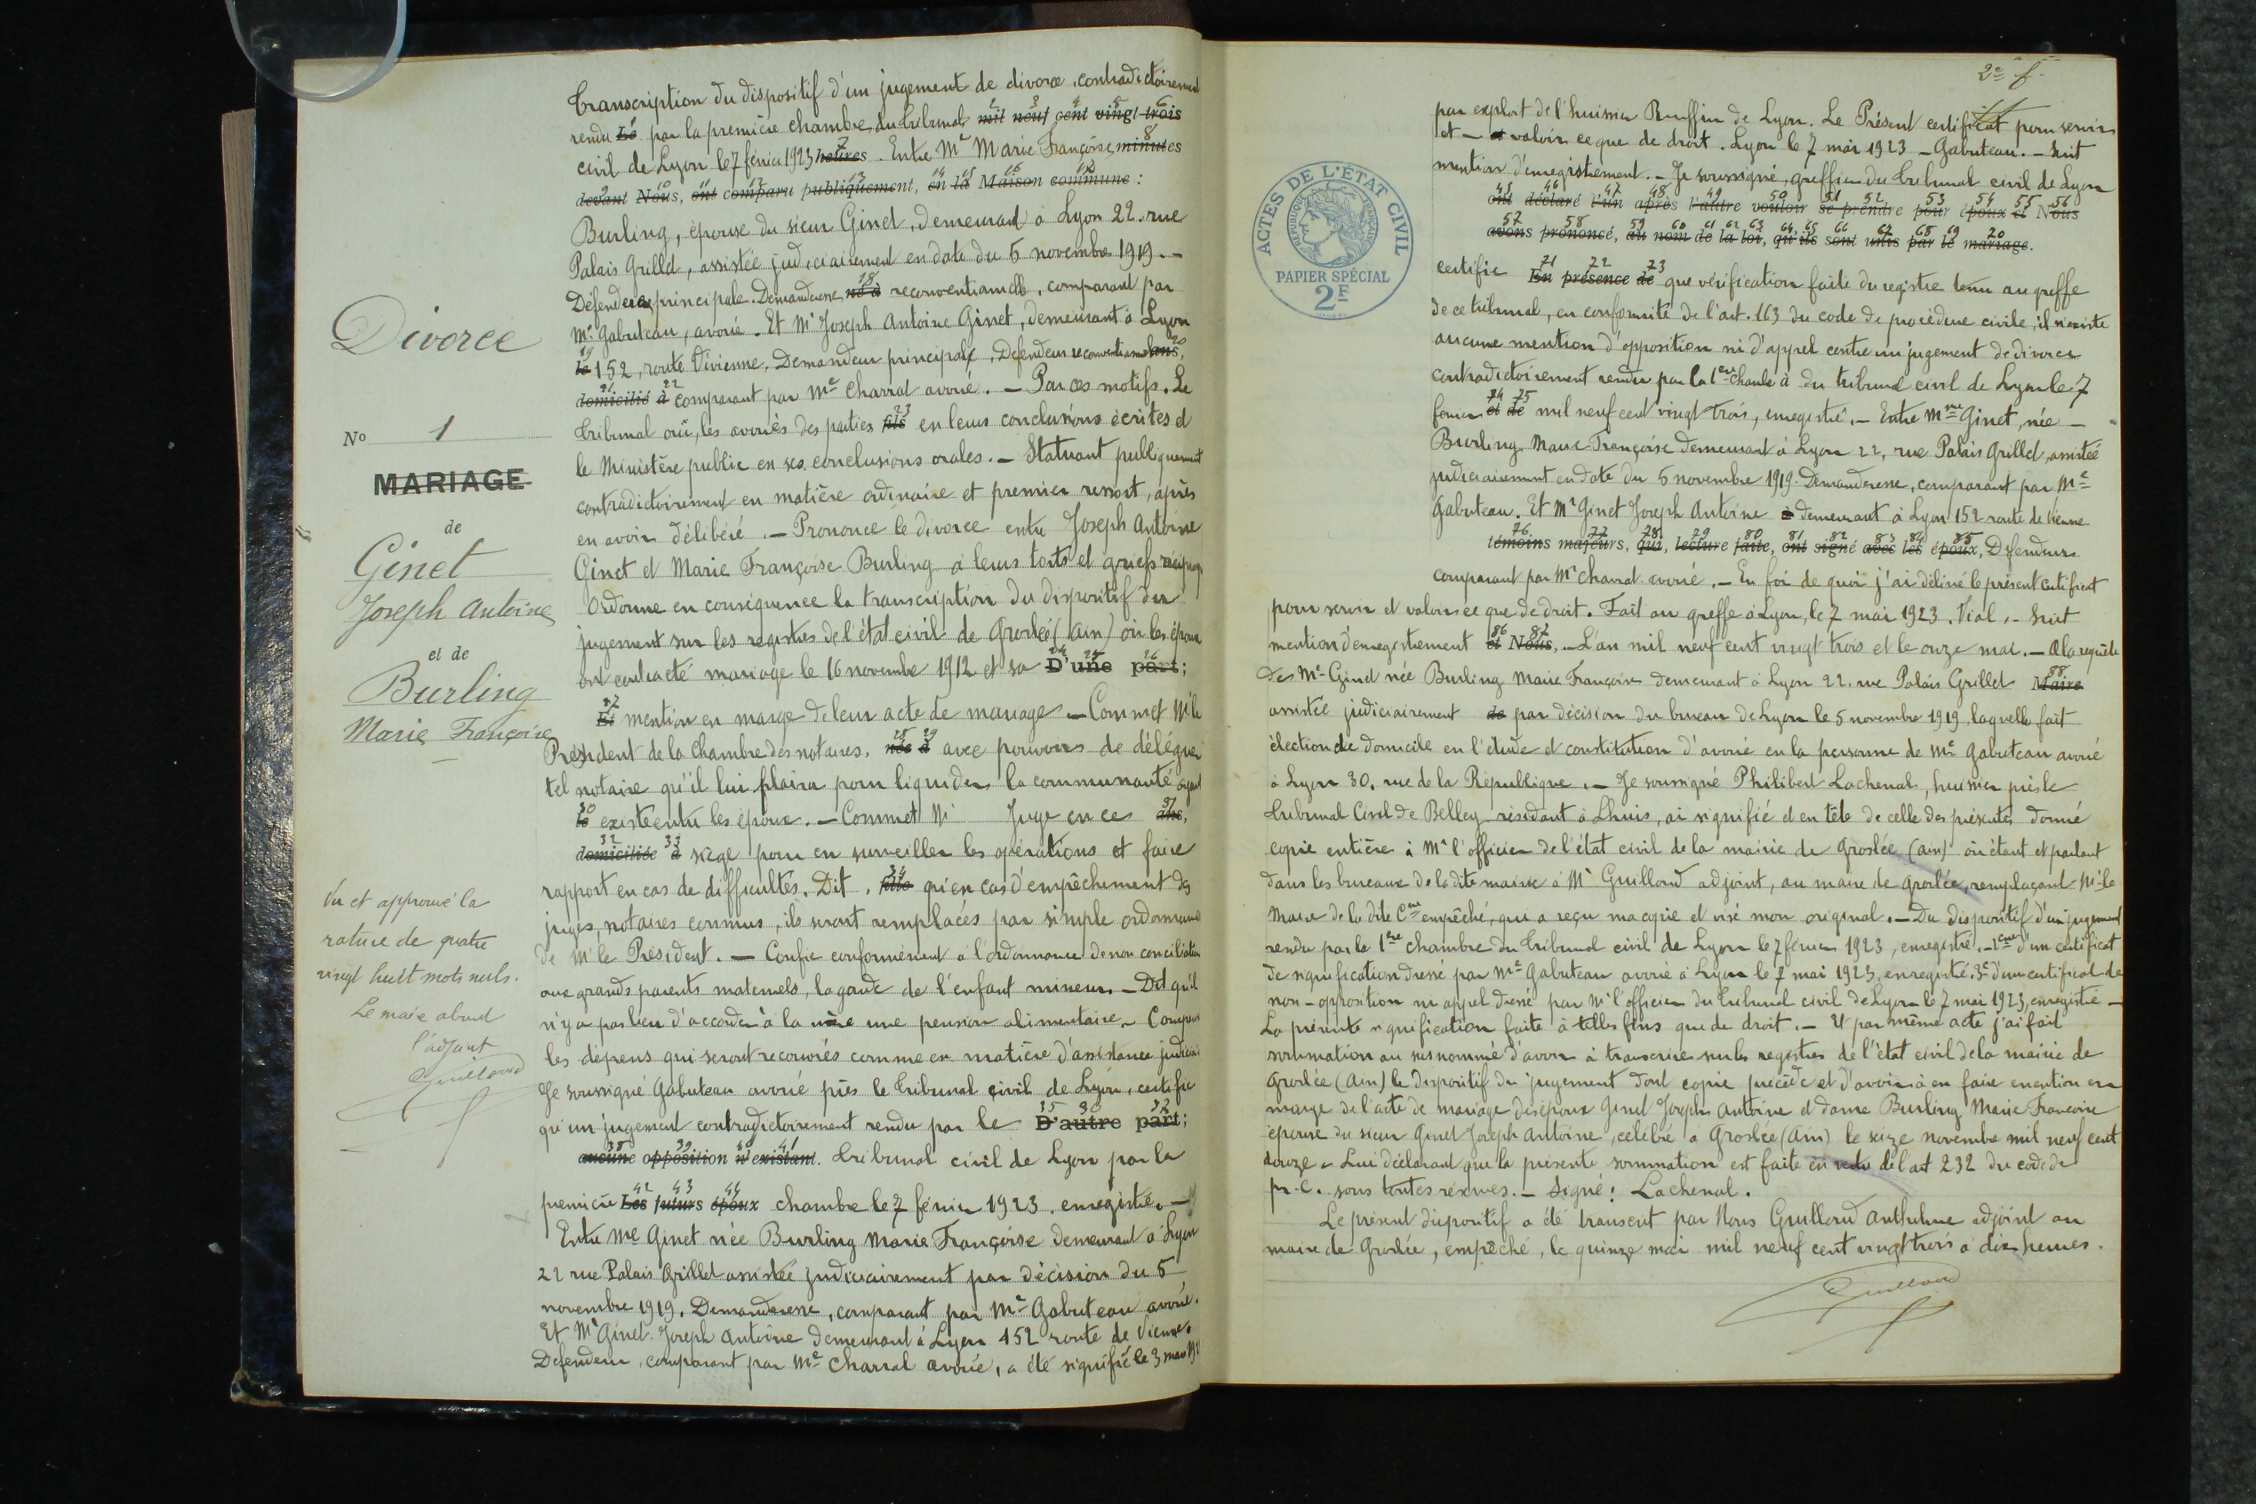 Divorce
No 1
MARIAGE
de
Ginet
Joseph Antoine
et de
Burling
Marie Françoise
Vu et approuvé la
rature de quatre
vingt huit mots nuls.
Le maire absent
l'adjoint
Guilloud
Transcription du dispositif d'un jugement de divorce, contradictoirement
rendu Le par la première chambre du tribunal mil neuf cent vingt-trois
civil de Lyon le 7 février 1923 heures. Entre Me Marie Françoise minutes
devant Nous, ont comparu publiquement, en la Maison commune :
Burling, épouse du sieur Ginet, demeurant à Lyon 22. rue
Palais Grillet, assistée judiciairement en date du 5 novembre 1919. —
Défenderesse principale. Demanderesse né à reconventionnelle, comparant par
Me Gabuteau, avoué. Et Mr Joseph Antoine Ginet, demeurant à Lyon
le 152, route Vivienne, Demandeur principal, Défendeur reconventionnel ans,
domicilié à comparant par Me Charrat avoué. — Par ces motifs. Le
tribunal ouï, les avoués des parties fils en leurs conclusions écrites et
le Ministère public en ses conclusions orales. — Statuant publiquement
contradictoirement en matière ordinaire et premier ressort, après
en avoir délibéré. — Prononce le divorce entre Joseph Antoine
Ginet et Marie Françoise Burling à leurs torts et griefs
Ordonne en conséquence la transcription du dispositif du
jugement sur les registres de l'état civil de Groslée (Ain) où les époux
ont contracté mariage le 16 novembre 1912 et sa D'une part;
Et mention en marge de leur acte de mariage — Commet Mr le
Président de la Chambre des notaires, née à avec pouvoirs de déléguer
tel notaire qu'il lui plaira pour liquider la communauté ayant
le existé entre les époux. — Commet Mr Juge en ce ans,
domiciliée à siège pour en surveiller les opérations et faire
rapport en cas de difficultés. Dit, fille qu'en cas d'empêchement des
juges, notaires commis, ils seront remplacés par simple ordonnance
de Mr le Président. — Confie conformément a l'ordonnance de non conciliation
aux grands parents maternels, la garde de l'enfant mineur. — Dit qu'il
n'y a pas lieu d'accorder à la mère une pension alimentaire. — Compense
les dépens qui seront recouvrés comme en matière d'assistance judiciaire
Je soussigné Gabuteau avoué près le tribunal civil de Lyon, certifie
qu'un jugement contradictoirement rendu par le D'autre part;
aucune opposition n'existant. tribunal civil de Lyon par la
première Les futurs époux chambre le 7 février 1923. enregistré. —
Entre Me Ginet née Burling Marie Françoise demeurant à Lyon
22 rue Palais Grillet assistée judiciairement par décision du 5
novembre 1919. Demanderesse, comparant par Me Gabuteau avoué.
Et Mr Ginet Joseph Antoine demeurant à Lyon 152 route de Vienne.
Défendeur, comparant par Me Charrat avoué, a été signifié le 3 mars
2e f.
ACTES DE L'ÉTAT CIVIL
RÉPUBLIQUE FRANÇAISE
PAPIER SPÉCIAL
2F
par exploit de l'huissier Ruffin de Lyon. Le Présent certificat pour servir
et — et valoir ce que de droit. Lyon le 7 mai 1923 — Gabuteau. — Suit
mention d'enregistrement. — Je soussigné, greffier du tribunal civil de Lyon
ont déclaré l'un après l'autre vouloir se prendre pour époux et Nous
avons prononcé, au nom de la loi, qu'ils sont unis par le mariage.
certifie En présence de que vérification faite du registre tenu au greffe
de ce tribunal, en conformité de l'art. 163 du code de procédure civile, il n'existe
aucune mention d'opposition ni d'appel contre un jugement de divorce
contradictoirement rendu par la 1ère Chambre à du tribunal civil de Lyon le 7
février et de mil neuf cent vingt trois, enregistré. — Entre Mme Ginet, née —
Burling Marie Françoise demeurant à Lyon 22, rue Palais Grillet, assistée
judiciairement en date du 5 novembre 1919. Demanderesse, comparant par Me
Gabuteau. Et Mr Ginet Joseph Antoine à demeurant à Lyon 152 route de Vienne
témoins majeurs, qui, lecture faite, ont signé avec les époux, Défendeur
comparant par Me Charrat avoué. — En foi de quoi j'ai délivré le présent certificat
pour servir et valoir ce que de droit. Fait au greffe à Lyon, le 7 mai 1923. Vial. — Suit
mention d'enregistrement et Nous, — L'an mil neuf cent vingt trois et le onze mai. — A la requête
de Me Ginet née Burling Marie Françoise demeurant à Lyon 22. rue Palais Grillet Maire
assistée judiciairement de par décision du bureau de Lyon le 5 novembre 1919, laquelle fait
élection de domicile en l'étude et constitution d'avoué en la personne de Me Gabuteau avoué
à Lyon 30. rue de la République. — Je soussigné Philibert Lachenal, huissier près le
tribunal Civil de Belley résidant à Lhuis, ai signifié et en tête de celle des présentes donné
copie entière à Mr l'officier de l'état civil de la mairie de Groslée (Ain) où étant et parlant
dans les bureaux de la dite mairie à Mr Guilloud adjoint, au maire de Groslée, remplaçant Mr le
Maire de la dite Cne empêché, qui a reçu ma copie et visé mon original. — Du dispositif d'un jugement
rendu par la 1ère chambre du tribunal civil de Lyon le 7 février 1923, enregistré. — d'un certificat
de signification dressé par Me Gabuteau avoué à Lyon le 7 mai 1923, enregistré. 3e d'un certificat de
non-opposition ni appel dressé par Mr l'officier du tribunal civil de Lyon le 7 mai 1923, enregistré —
La présente signification faite à telles fins que de droit. — Et par même acte j'ai fait
sommation au susnommé d'avoir à transcrire sur les registres de l'état civil de la mairie de
Groslée (Ain) le dispositif du jugement dont copie précède et d'avoir à en faire mention en
marge de l'acte de mariage des époux Ginet Joseph Antoine et dame Burling Marie Françoise
épouse du sieur Ginet Joseph Antoine, célébré à Groslée (Ain) le seize novembre mil neuf cent
douze — Lui déclarant que la présente sommation est faite en vertu de l'art 232 du code de
pr. c. sous toutes réserves. — Signé : Lachenal.
Le présent dispositif a été transcrit par Nous Guilloud Anthelme adjoint au
maire de Groslée, empêché, le quinze mai mil neuf cent vingt trois à dix heures.
Guilloud